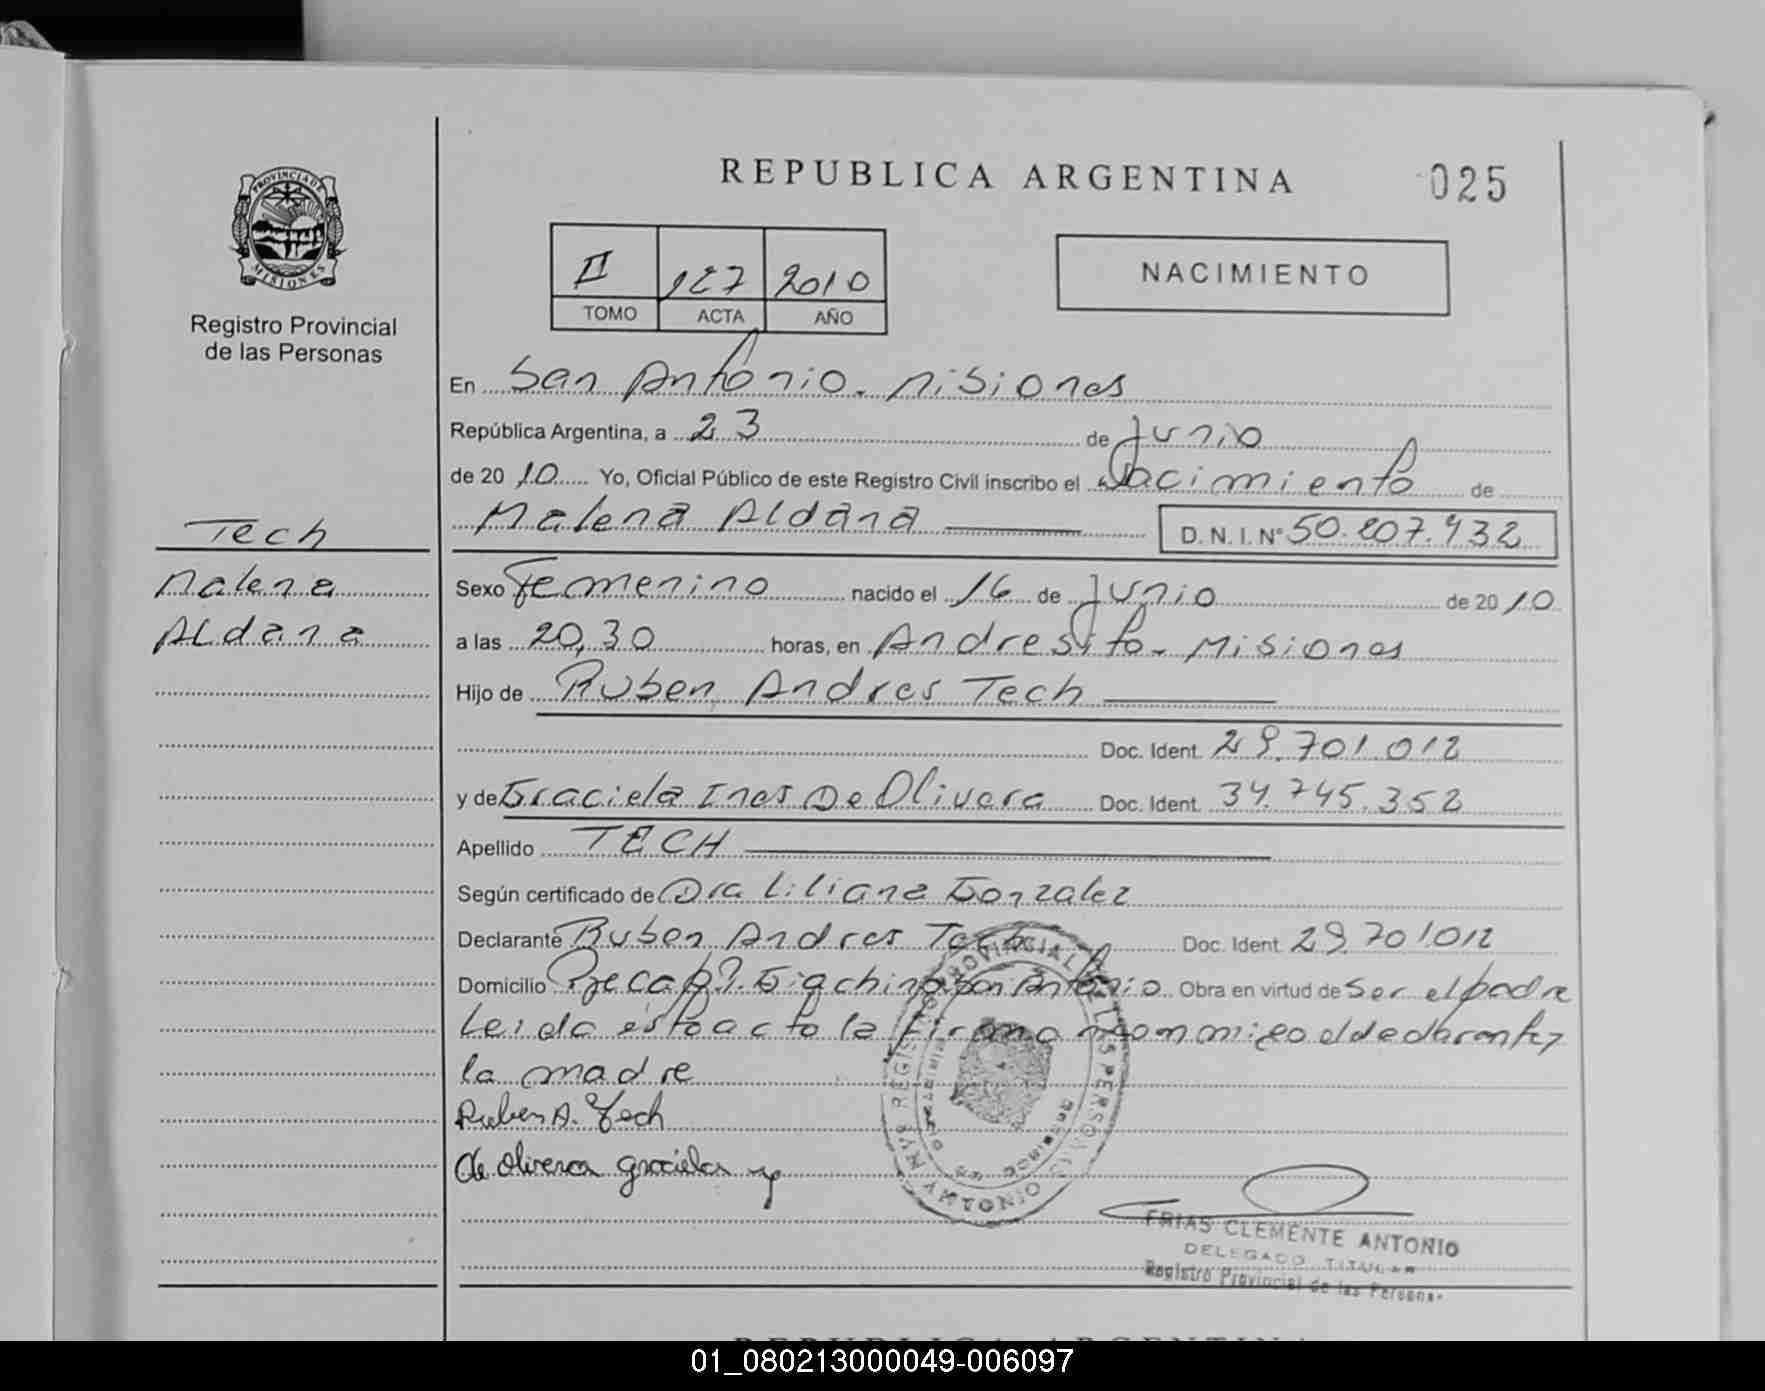 REPUBLICA ARGENTINA
025
PROVINCIA DE
MISIONES
Registro Provincial
de las Personas
II 127 2010
TOMO ACTA AÑO
NACIMIENTO
En San Antonio. Misiones
República Argentina, a 23 de Junio
de 2010 Yo, Oficial Público de este Registro Civil inscribo el Nacimiento de
Malena Aldana D.N.I. Nº 50.207.432
Tech
Malena
Aldana
Sexo Femenino nacido el 16 de Junio de 2010
a las 20,30 horas, en Andresito. Misiones
Hijo de Ruben Andres Tech
Doc. Ident. 29.701.012
y de Graciela Ines De Olivera Doc. Ident. 34.745.352
Apellido TECH
Según certificado de Dra Liliana Gonzalez
Declarante Ruben Andres Tech Doc. Ident. 29.701.012
Domicilio San Antonio Obra en virtud de Ser el padre
Leida esto acto la firman conmigo el declarante y
la madre
Ruben A. Tech
de olivera graciela
FRIAS CLEMENTE ANTONIO
DELEGADO TITULAR
Registro Provincial de las Personas
REPUBLICA ARGENTINA
01_080213000049-006097